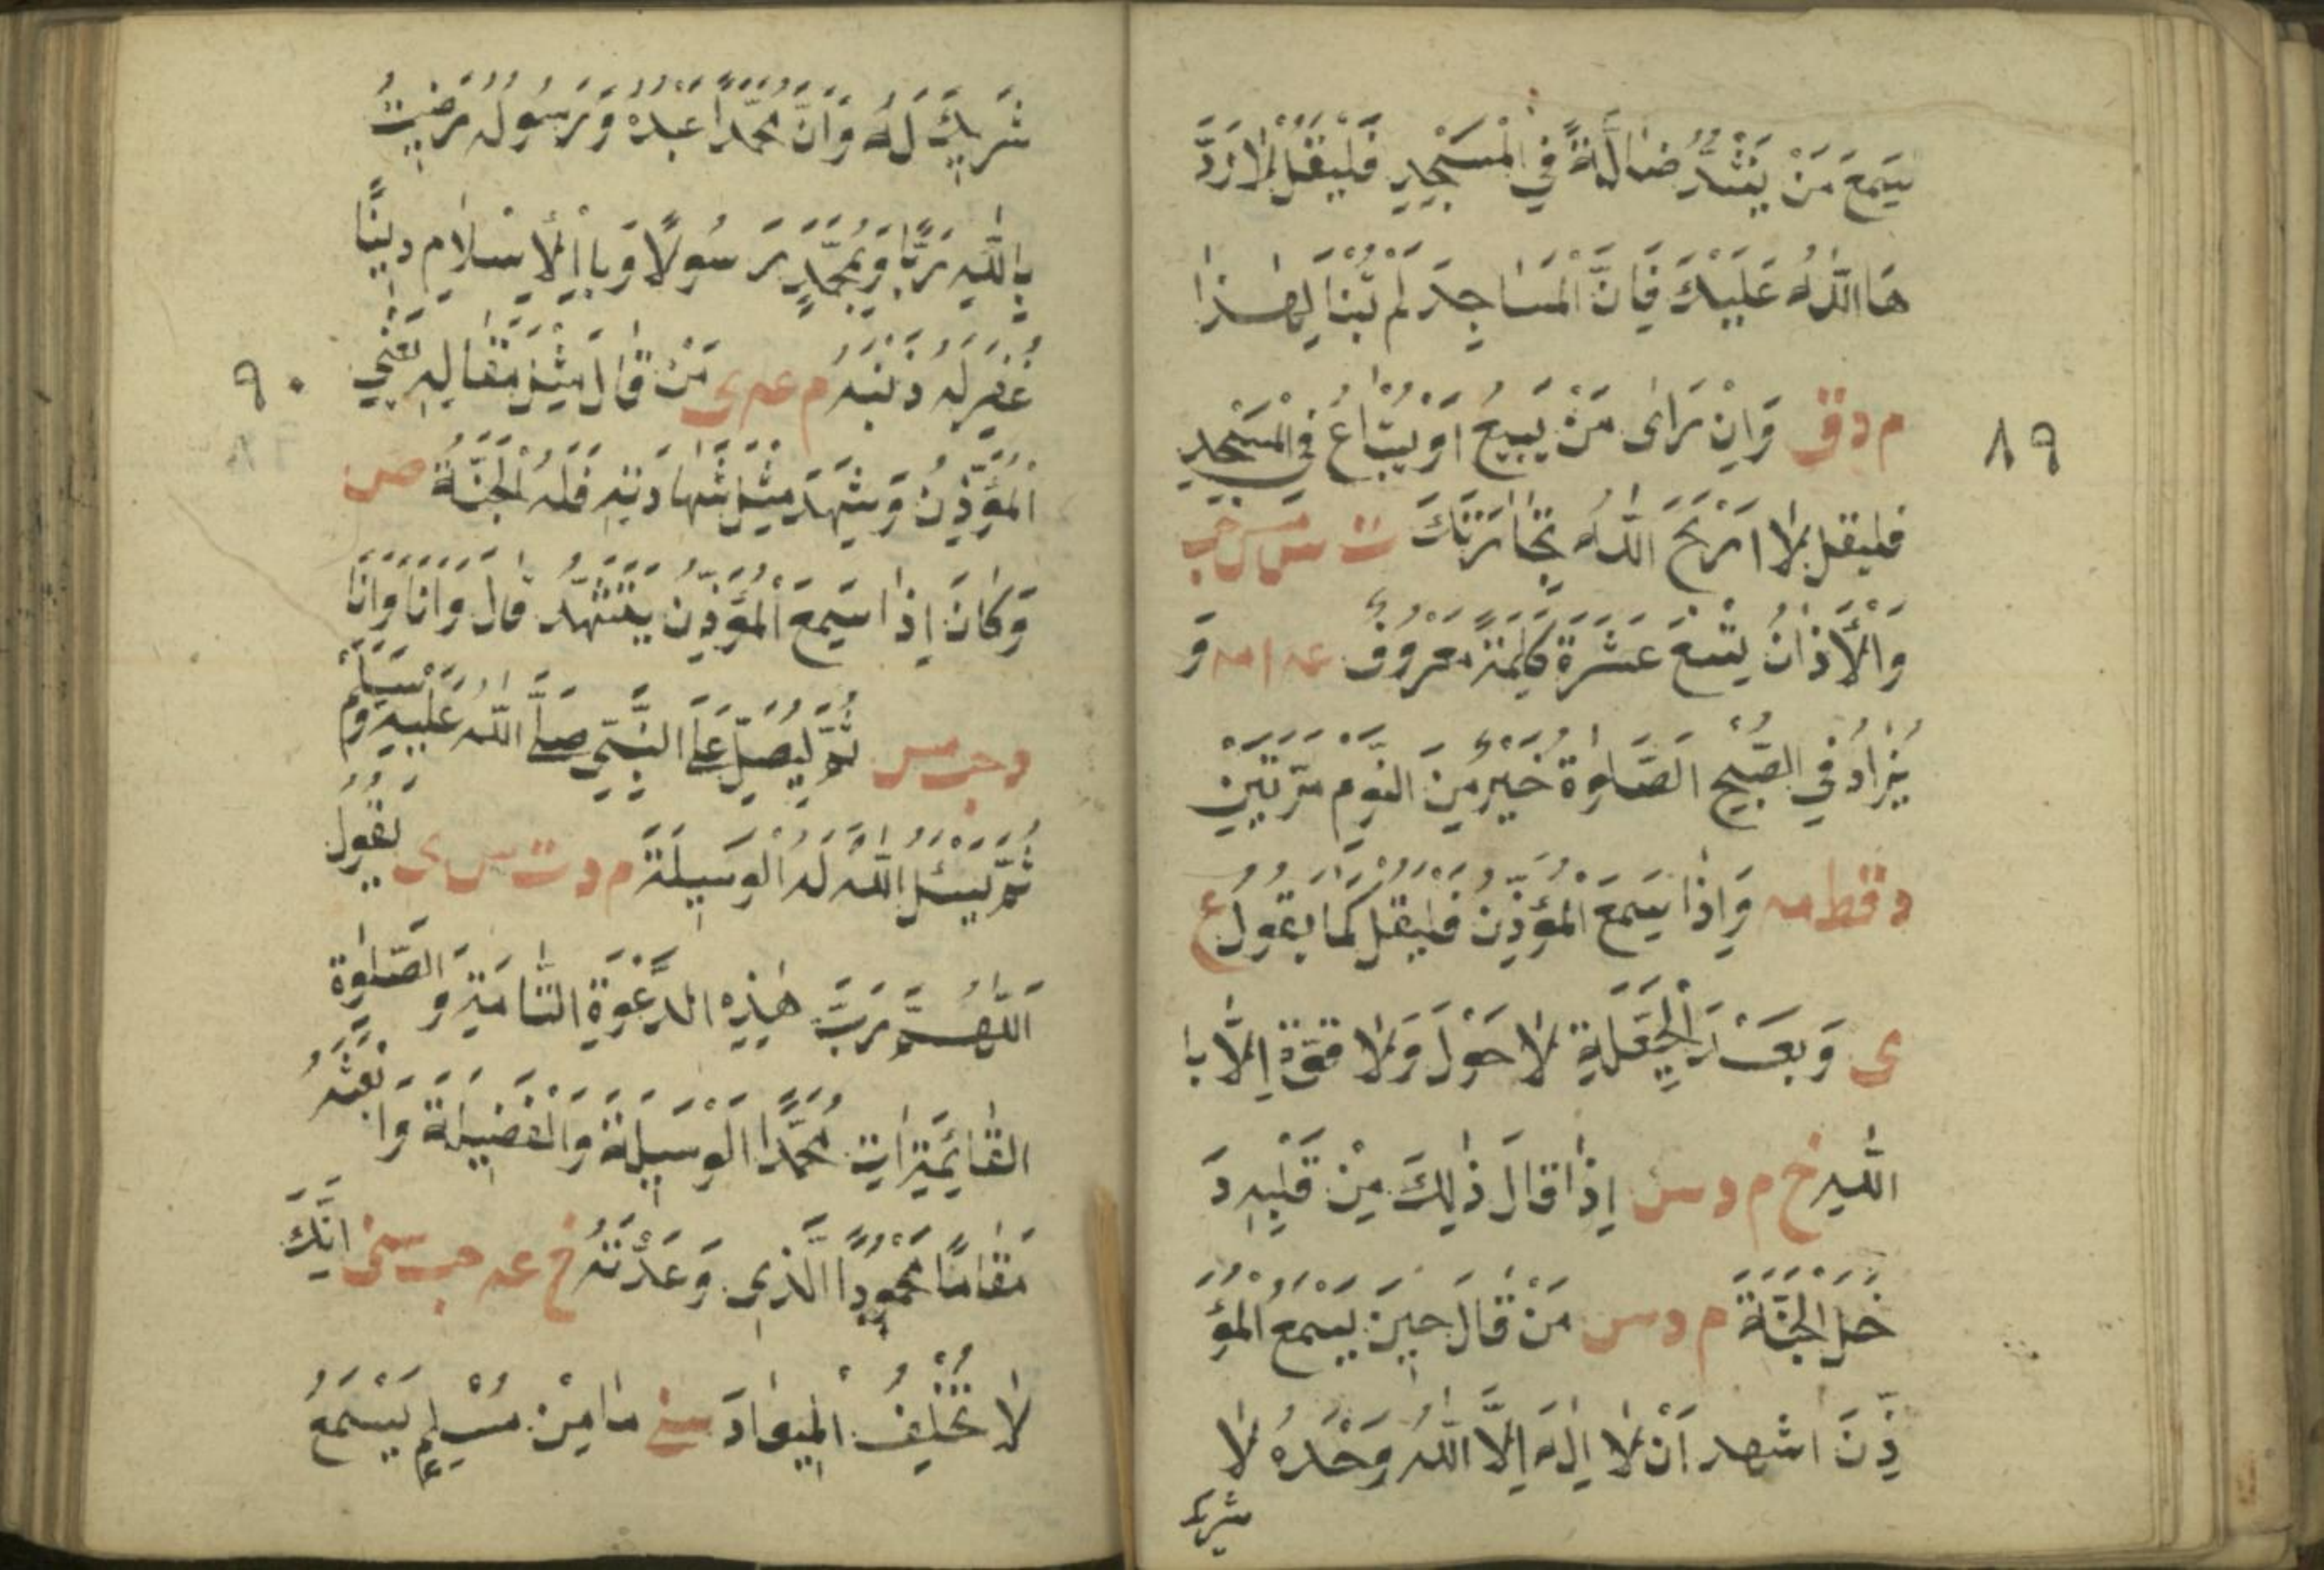 يَسْمَعَ مَنْ يَنْشُدُ ضَالَّةً فِي الْمَسْجِدِ فَلْيَقُلْ لَا رَدَّ
هَا اللّٰهُ عَلَيْكَ فَاِنَّ الْمَسَاجِدَ لَمْ تُبْنَ لِهٰذَا
م د ق وَاِنْ رَاٰى مَنْ يَبِيعُ اَوْ يَبْتَاعُ فِي الْمَسْجِدِ
٨٩
فليقل لا اَرْبَحَ اللّٰهُ تِجَارَتَكَ ت س مس حب
وَالْاَذَانُ تِسْعَ عَشْرَةَ كَلِمَةً مَعْرُوفٌ عه ا مه وَ
يُزَادُ فِي الصُّبْحِ الصَّلٰوةُ خَيْرٌ مِنَ النَّوْمِ مَرَّتَيْنِ
د قط مه وَاِذَا سَمِعَ الْمُؤَذِّنَ فَلْيَقُلْ كَمَا يَقُولُ ع
ى وَبَعْدَ الْحَيْعَلَةِ لَا حَوْلَ وَلَا قُوَّةَ اِلَّا بِا
اللّٰهِ خ م د س اِذَا قَالَ ذٰلِكَ مِنْ قَلْبِهِ دَ
خَلَ الْجَنَّةَ م د س مَنْ قَالَ حِينَ يَسْمَعُ الْمُؤَ
ذِّنَ اشهد اَنْ لَا اِلٰهَ اِلَّا اللّٰهُ وَحْدَهُ لَا
شريك
شَرِيكَ لَهُ وَاَنَّ مُحَمَّدًا عَبْدُهُ وَرَسُولُهُ رَضِيتُ
بِاللّٰهِ رَبًّا وَبِمُحَمَّدٍ رَسُولًا وَبِالْاِسْلَامِ دِينًا
غُفِرَ لَهُ ذَنْبُهُ م عه ى مَنْ قَالَ مِثْلَ مَقَالِهِ يَعْنِي
٩٠
الْمُؤَذِّنُ وَشَهِدَ مِثْلَ شَهَادَتِهِ فَلَهُ الْجَنَّةُ ص
وَكَانَ اِذَا سَمِعَ الْمُؤَذِّنَ يَتَشَهَّدُ قَالَ وَاَنَا وَاَنَا
د حب مس ثُمَّ لِيُصَلِّ عَلَى النَّبِيِّ صَلَّى اللّٰهُ عَلَيْهِ وَسَلَّمَ
ثُمَّ لِيَسْئَلِ اللّٰهَ لَهُ الْوَسِيلَةَ م د ت س ى يَقُولُ
اَللّٰهُمَّ رَبَّ هٰذِهِ الدَّعْوَةِ التَّامَّةِ وَالصَّلٰوةِ
القَائِمَةِ اٰتِ مُحَمَّدًا الْوَسِيلَةَ وَالْفَضِيلَةَ وَابْعَثْهُ
مَقَامًا مَحْمُودًا الَّذِي وَعَدْتَهُ خ عه حب سنى اِنَّكَ
لَا تُخْلِفُ الْمِيعَادَ سنى مَا مِنْ مُسْلِمٍ يَسْمَعُ